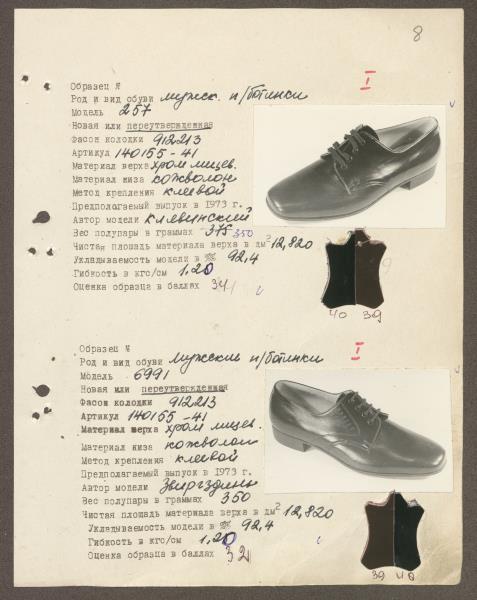 8
I
Образец №
Род и вид обуви мужск. п/ботинки
Модель 257
Новая или переутвержденная
Фасон колодки 912213
Артикул 140155-41
Материал верха хром лицев.
Материал низа кожволон
Метод крепления клеевой
Предполагаемый выпуск в 1973 г.
Автор модели Клявинский
Вес полупары в граммах 375 350
Чистая площадь материала верха в дм² 12,820
Укладываемость модели в % 92,4
Гибкость в кгс/см 1,20
Оценка образца в баллах
40 39
I
Образец №
Род и вид обуви мужские п/ботинки
Модель 6991
Новая или переутвержденная
Фасон колодки 912213
Артикул 140155-41
Материал верха хром лицев.
Материал низа кожволон
Метод крепления клеевой
Предполагаемый выпуск в 1973 г.
Автор модели Звиргздинь
Вес полупары в граммах 350
Чистая площадь материала верха в дм² 12,820
Укладываемость модели в % 92,4
Гибкость в кгс/см 1,20
Оценка образца в баллах 32
39 40